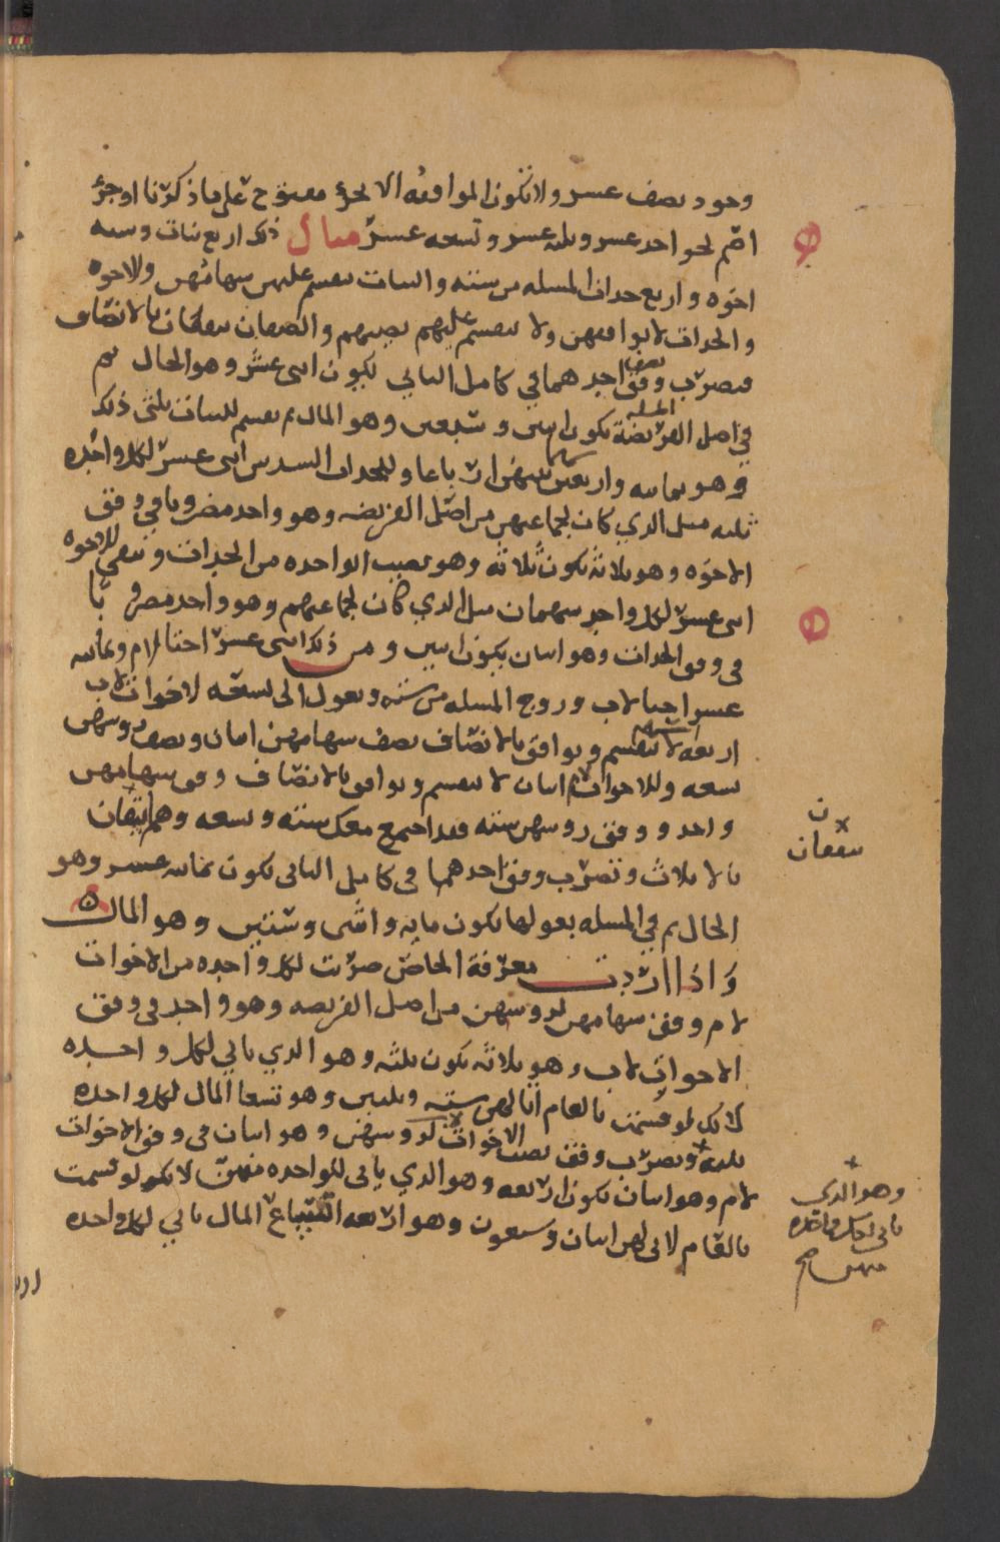 وجود نصف عشر ولا تكون الموافقه الا بجزء مفتوح على ما ذكرنا او جزء
اصم نحو احد عشر وثلثه عشر وتسعه عشر مثال ذلك اربع بنات وسته
اخوه واربع جدات المسله من سته والبنات تنقسم عليهن سهامهن والاخوه
والجدات لا يوافقهن ولا تنقسم عليهم نصيبهم والصنفان يتفقان بالانصاف
فتضرب وفق احدهما في كامل الثاني يكون اثنى عشر وهو الحال ثم
في اصل الفريضة المسله يكون اثنين وسبعين وهو المال ثم تقسم للبنات ثلثي ذلك
وهو ثمانيه واربعين بينهن ارباعا وللجدات السدس اثنى عشر لكل واحده
ثلثه مثل الذي كان لجماعتهن من اصل الفريضه وهو واحد مضروبا في وفق
الاخوه وهو ثلاثة يكون ثلاثة وهو نصيب الواحده من الجدات وتبقى للاخوه
اثنى عشر لكل واحد سهمان مثل الذي كان لجماعتهم وهو واحد مضروبا
في وفق الجدات وهو اثنان يكون اثنين ومن ذلك اثنى عشر اختا لام وثمانيه
عشر اختا لاب وزوج المسله من سته وتعول الى تسعه للاخوات لاب
اربعه لا تنقسم ويوافق بالانصاف نصف سهامهن اثنان ونصف روسهن
تسعه وللاخوات لام اثنان لا تنقسم ويوافق بالانصاف وفق سهامهن
واحد ووفق روسهن سته فقد اجتمع معك سته وتسعه وهما يتفقان
بالاثلاث وتضرب وفق احدهما في كامل الثاني يكون ثمانيه عشر وهو
الحال ثم في المسله بعولها يكون مايه واثنى وستين وهو المال
واذا اردت معرفة الخاص ضربت لكل واحده من الاخوات
لام وفق سهامهن لروسهن من اصل الفريضه وهو واحد في وفق
الاخوات لاب وهو ثلاثه يكون ثلثه وهو الذي ياتي لكل واحده
لانك لو قسمت بالعام اتا لهن سته وثلثين وهو تسعا المال لكل واحده
ثلثه وتضرب وفق نصيب الاخوات لاب لروسهن وهو اثنان في وفق الاخوات
لام وهو اثنان يكون اربعه وهو الذي ياتي للواحده منهن لانك لو قسمت
بالعام لاتى لهن اثنان وسبعون وهو اربعه اتساع المال ياتي لكل واحده
ن
يتفقان
وهو الذي
ياتي لكل واحده
منهن صح